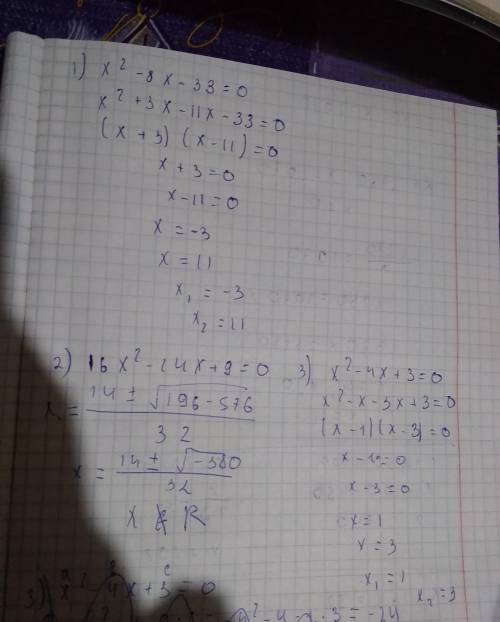 1) x² - 8x - 33 = 0
x² + 3x - 11x - 33 = 0
(x + 3) (x - 11) = 0
x + 3 = 0
x - 11 = 0
x = -3
x = 11
x₁ = -3
x₂ = 11
2) 16x² - 14x + 9 = 0
x = (14 ± √(196 - 576)) / 32
x = (14 ± √(-380)) / 32
x ∉ R
3) x² - 4x + 3 = 0
x² - x - 3x + 3 = 0
(x - 1)(x - 3) = 0
x - 1 = 0
x - 3 = 0
x = 1
x = 3
x₁ = 1
x₂ = 3
3) x² - 4x + 3 = 0
· 3 = -24